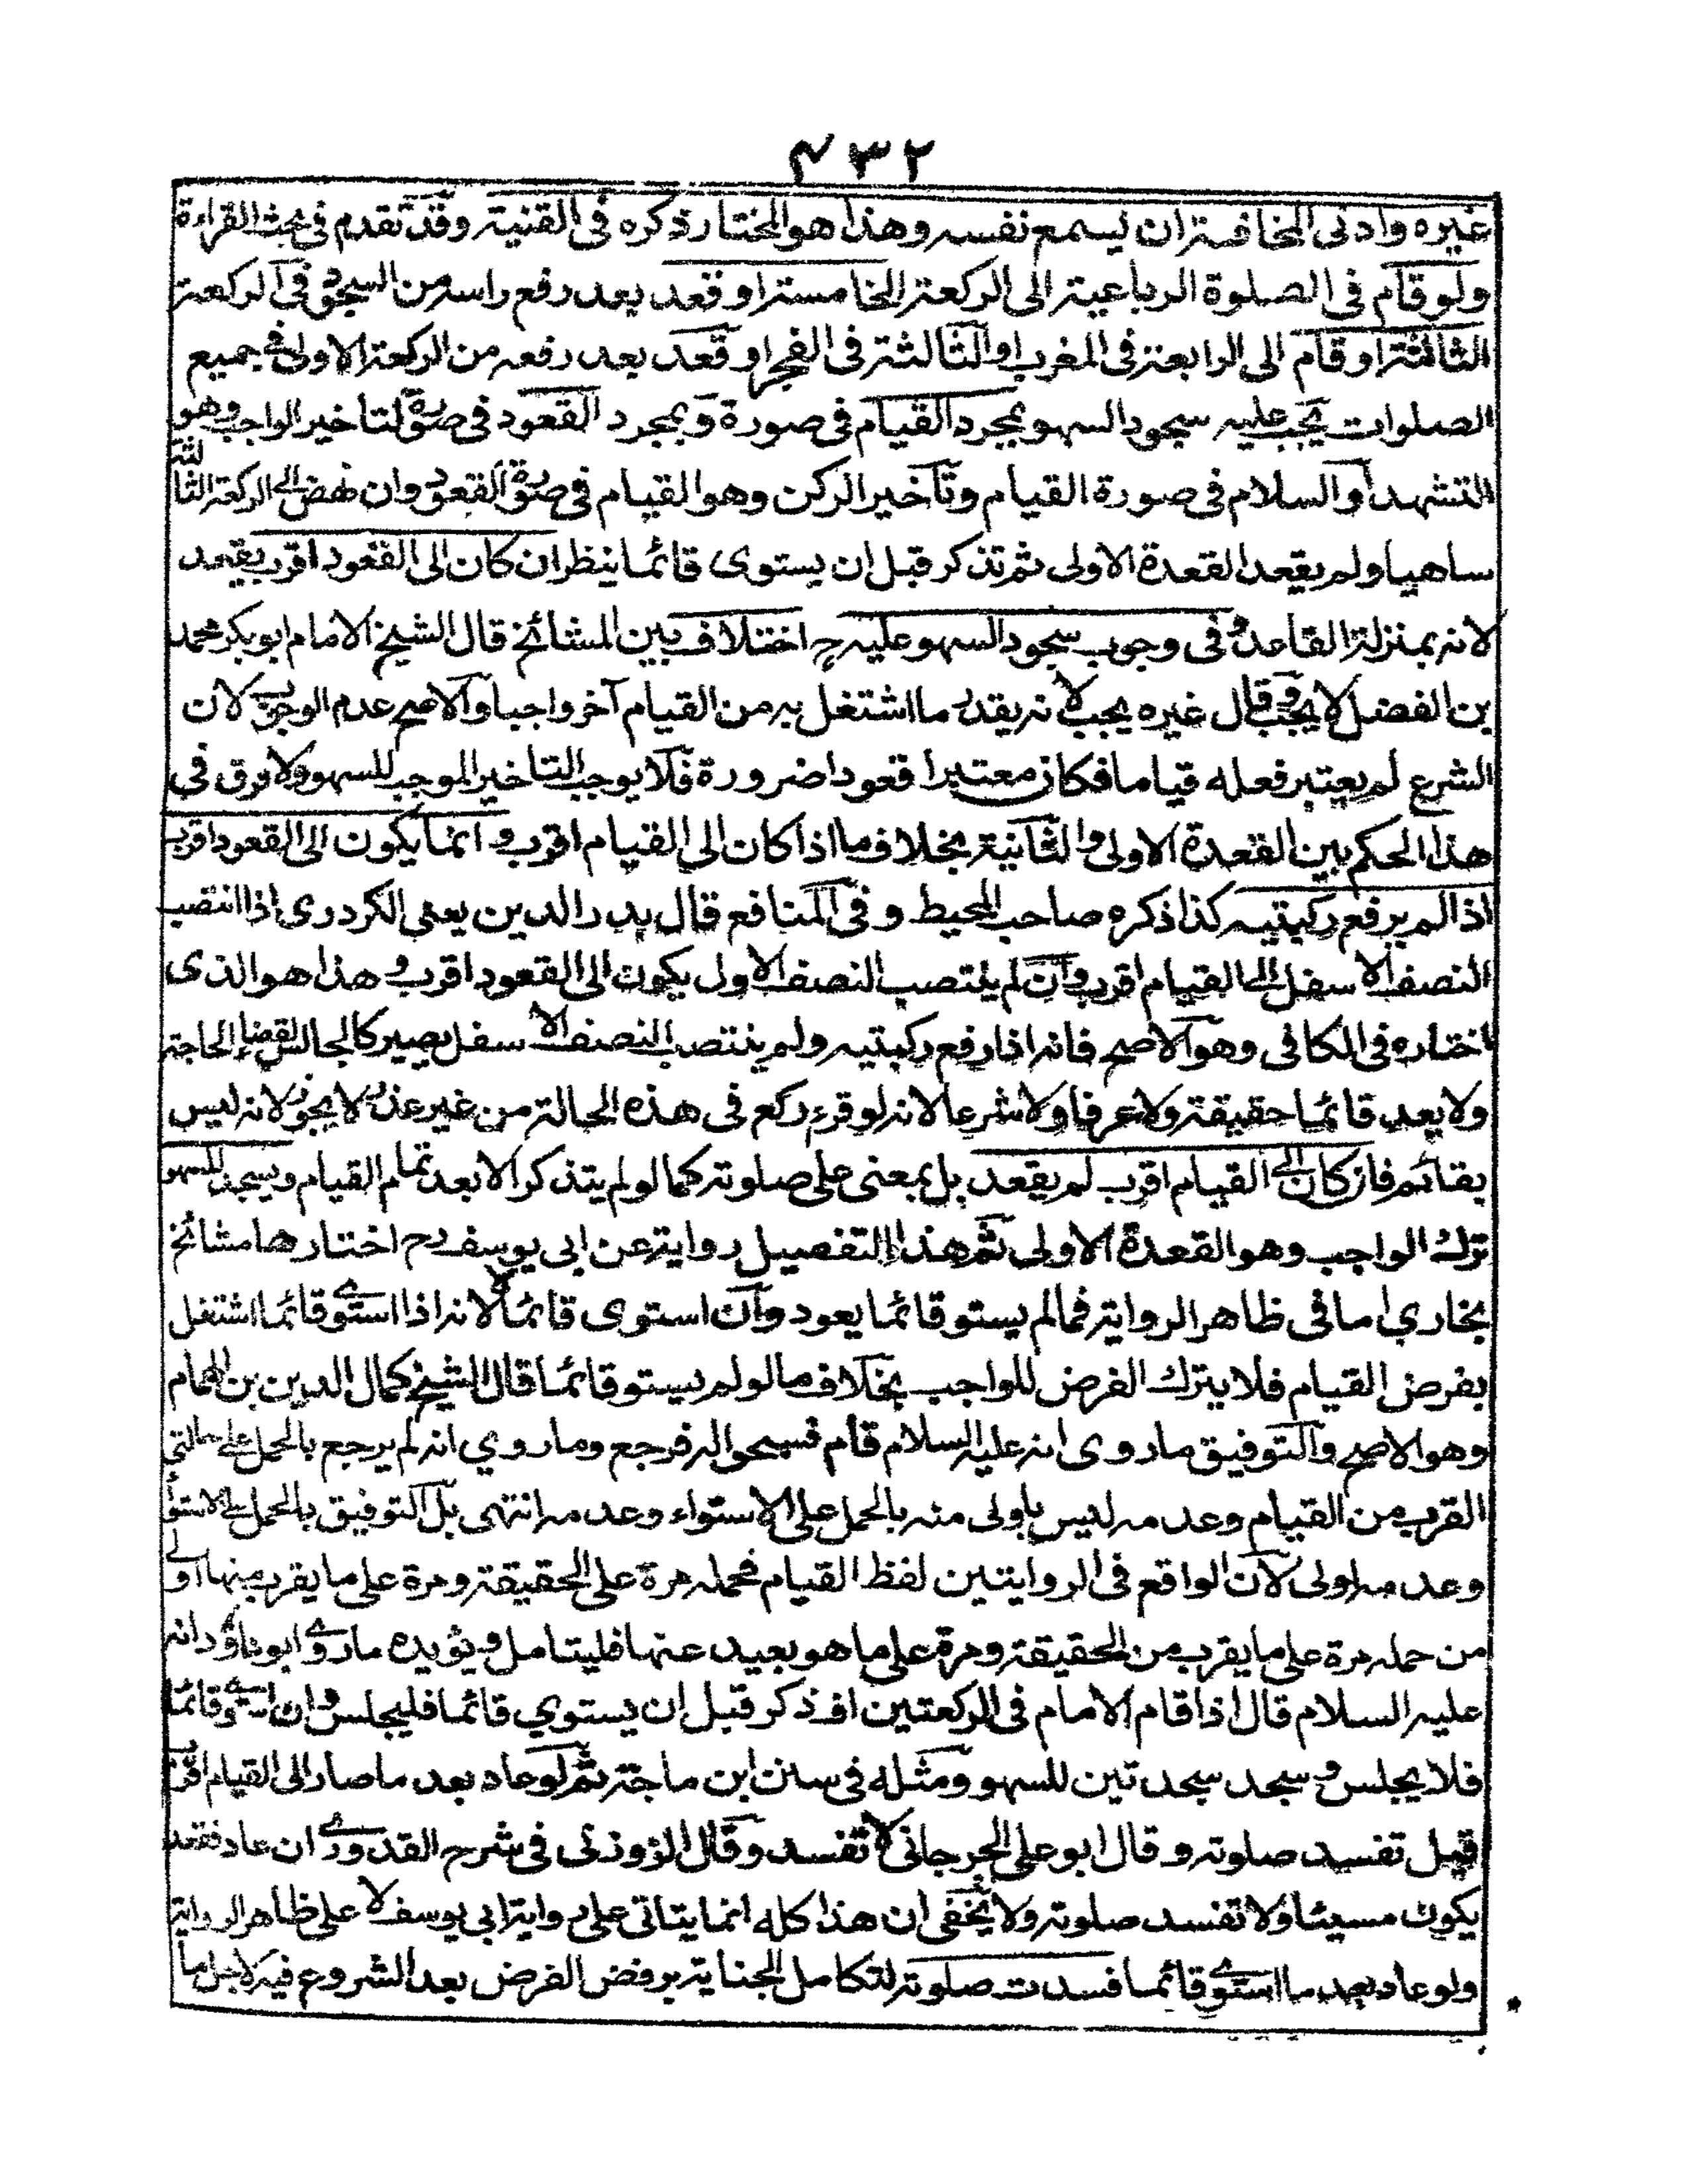 ٤٣٢
غيره وادنى المخافتة ان يسمع نفسه وهذا هو المختار ذكره فى القنية وقد تقدم فى بحث القراءة
ولو قام فى الصلوة الرباعية الى الركعة الخامسة او قعد بعد رفع راسه من السجود فى الركعة
الثالثة او قام الى الرابعة فى المغرب او الثالثة فى الفجر او قعد بعد رفعه من الركعة الاولى فى جميع
الصلوات يجب عليه سجود السهو بمجرد القيام فى صورة وبمجرد القعود فى صورة لتاخير الواجب وهو
التشهد او السلام فى صورة القيام وتاخير الركن وهو القيام فى صورة القعود وان نهض الى الركعة الثالثة
ساهيا ولم يقعد القعدة الاولى ثم تذكر قبل ان يستوى قائما ينظر ان كان الى القعود اقرب يقعد
لانه بمنزلة القاعد وفى وجوب سجود السهو عليه ح اختلاف بين المشائخ قال الشيخ الامام ابو بكر محمد
بن الفضل لا يجب وقال غيره يجب لانه بقدر ما اشتغل به من القيام آخر واجبا والاصح عدم الوجوب لان
الشرع لم يعتبر فعله قياما فكان معتبرا قعودا ضرورة فلا يوجب التاخير الموجب للسهو ولا فرق فى
هذا الحكم بين القعدة الاولى والثانية بخلاف ما اذا كان الى القيام اقرب و انما يكون الى القعود اقرب
اذا لم يرفع ركبتيه كذا ذكره صاحب المحيط و فى المنافع قال بدر الدين يعنى الكردرى اذا انتصب
النصف الاسفل الى القيام اقرب وان لم ينتصب النصف الاول يكون الى القعود اقرب و هذا هو الذى
اختاره فى الكافى وهو الاصح فانه اذا رفع ركبتيه ولم ينتصب النصف الاسفل يصير كالجالس لقضاء الحاجة
ولا يعد قائما حقيقة ولا عرفا ولا شرعا لانه لو قرء ركع فى هذه الحالة من غير عذر لا يجوز لانه ليس
بقائم فان كان الى القيام اقرب لم يقعد بل يمعنى على صلوته كما لو لم يتذكر الا بعد تمام القيام ويسجد للسهو
ترك الواجب وهو القعدة الاولى ثم هذا التفصيل رواية عن ابى يوسف رح اختارها مشائخ
بخارى اما فى ظاهر الرواية فما لم يستو قائما يعود وان استوى قائما لا لانه اذا استوى قائما اشتغل
بفرض القيام فلا يترك الفرض للواجب بخلاف ما لو لم يستو قائما قال الشيخ كمال الدين بن الهمام
وهو الاصح والتوفيق ما روى انه عليه السلام قام فسبحوا له فرجع وما روي انه لم يرجع بالحمل على حالتى
القرب من القيام وعدمه ليس باولى منه بالحمل على الاستواء وعدمه انتهى بل التوفيق بالحمل على الاستواء
وعدمه اولى لان الواقع فى الروايتين لفظ القيام فحمله مرة على الحقيقة ومرة على ما يقرب منها اولى
من حمله مرة على ما يقرب من الحقيقة ومرة على ما هو بعيد عنها فليتامل و يؤيده ما روى ابو داؤد انه
عليه السلام قال اذا قام الامام فى الركعتين ان ذكر قبل ان يستوي قائما فليجلس و ان استوى قائما
فلا يجلس و سجد سجدتين للسهو ومثله فى سنن ابن ماجة ثم لو عاد بعد ما صار الى القيام اقرب
قيل تفسد صلوته و قال ابو على الجرجانى لا تفسد وقال الزوزنى فى شرح القدورى ان عاد فقعد
يكون مسيئا ولا تفسد صلوته ولا يخفى ان هذا كله انما يتاتى على رواية ابى يوسف لا على ظاهر الرواية
ولو عاد بعد ما استوى قائما فسدت صلوته لتكامل الجناية برفض الفرض بعد الشروع فيه لاجل ما